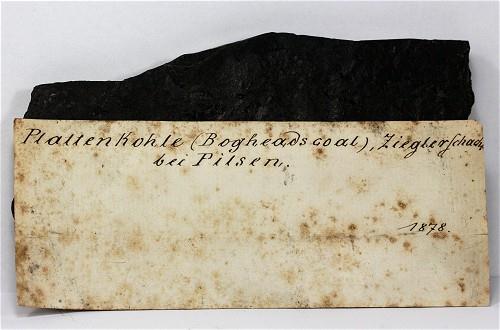 Plattenkohle (Bogheadscoal), Zieglerschacht
bei Pilsen.
1878.